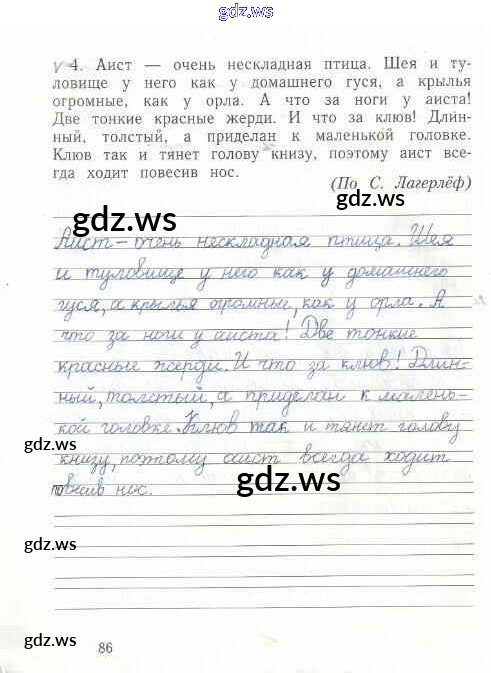 gdz.ws
4. Аист — очень нескладная птица. Шея и ту-
ловище у него как у домашнего гуся, а крылья
огромные, как у орла. А что за ноги у аиста!
Две тонкие красные жерди. И что за клюв! Длин-
ный, толстый, а приделан к маленькой головке.
Клюв так и тянет голову книзу, поэтому аист все-
гда ходит повесив нос.
(По С. Лагерлёф)
gdz.ws
gdz.ws
Аист – очень нескладная птица. Шея
и туловище у него как у домашнего
гуся, а крылья огромные, как у орла. А
что за ноги у аиста! Две тонкие
красные жерди. И что за клюв! Длин-
ный, толстый, а приделан к малень-
кой головке. Клюв так и тянет голову
gdz.ws
книзу, поэтому аист всегда ходит
повесив нос.
gdz.ws
gdz.ws
gdz.ws
86
gdz.ws